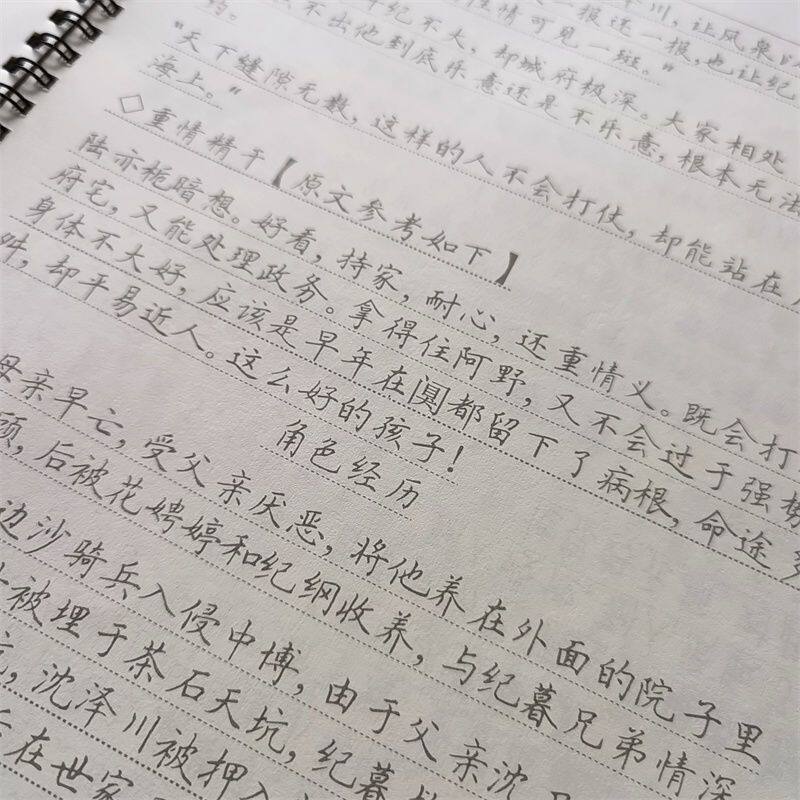 川，让风泉
一报还一报，也让纪
性情可见一斑。”
年纪不大，却城府极深。大家相处
不出他到底乐意还是不乐意，根本无法
“天下缝隙无数，这样的人不会打仗，却能站在
海上。”
◇重情精干【原文参考如下】
陆亦栀暗想。好看，持家，耐心，还重情义。既会打
府宅，又能处理政务。拿得住阿野，又不会过于强势
身体不大好，应该是早年在阒都留下了病根，命途
却平易近人。这么好的孩子！
角色经历
母亲早亡，受父亲厌恶，将他养在外面的院子里
后被花娉婷和纪纲收养，与纪暮兄弟情深
边沙骑兵入侵中博，由于父亲沈
被埋于茶石天坑，纪暮
沈泽川被押入
在世家